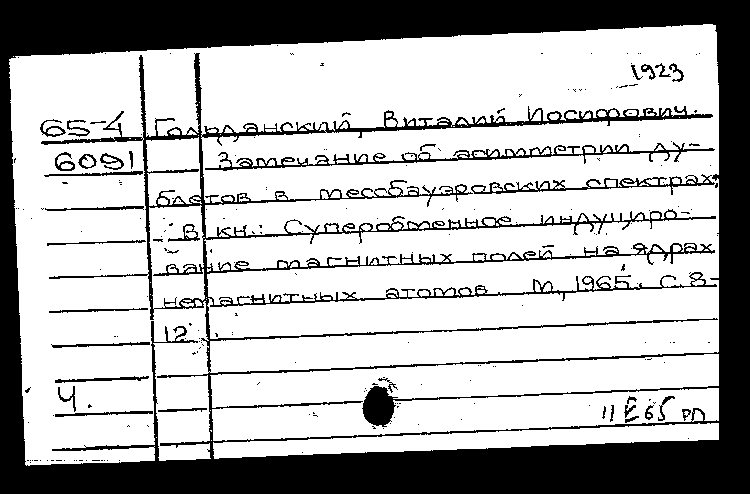 1923
65-4 Гольданский, Виталий Иосифович.
6091 Замечание об асимметрии ду-
блетов в мессбауэровских спектрах.
В кн.: Суперобменное индуциро-
вание магнитных полей на ядрах
немагнитных атомов. М., 1965. С. 8-
12.
Ч.
11 E 65 РП